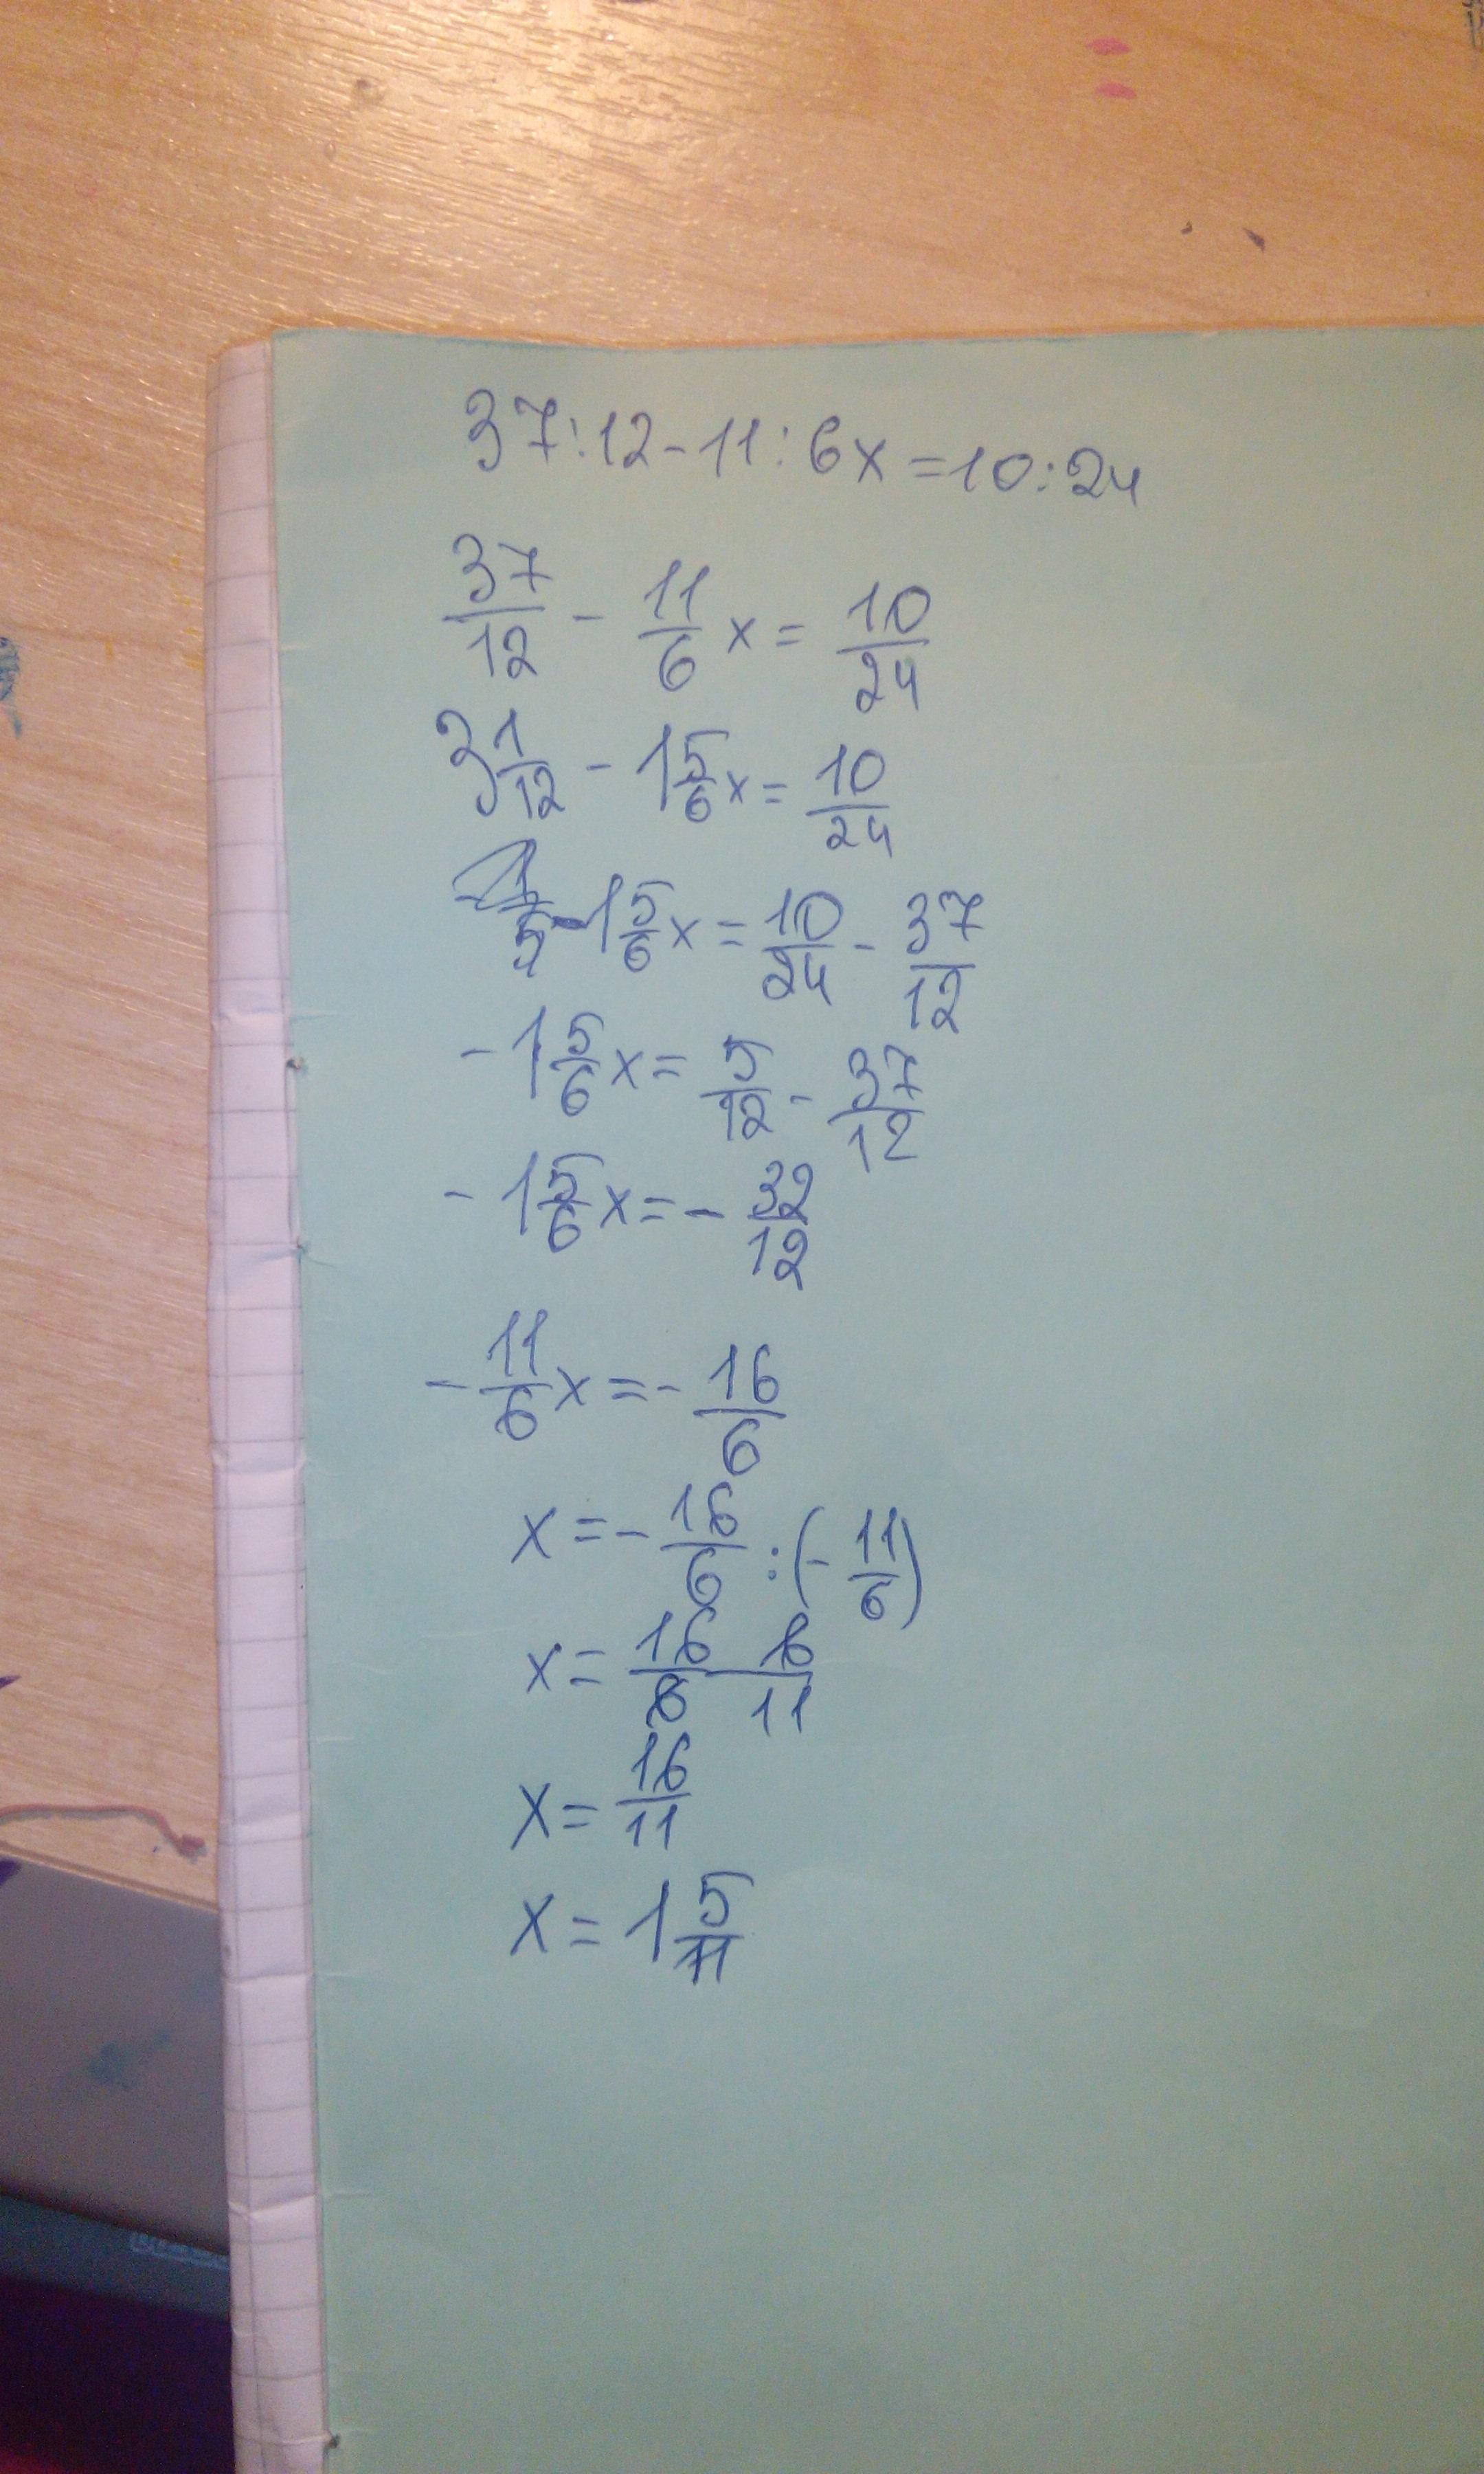 37:12-11:6x=10:24
37/12 - 11/6 x = 10/24
3 1/12 - 1 5/6 x = 10/24
-1 5/6 x = 10/24 - 37/12
- 1 5/6 x = 5/12 - 37/12
- 1 5/6 x = - 32/12
- 11/6 x = - 16/6
x = - 16/6 : (- 11/6)
x = 16/6 6/11
x = 16/11
x = 1 5/11